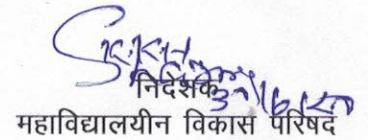 निदेशक
महाविद्यालयीन विकास परिषद